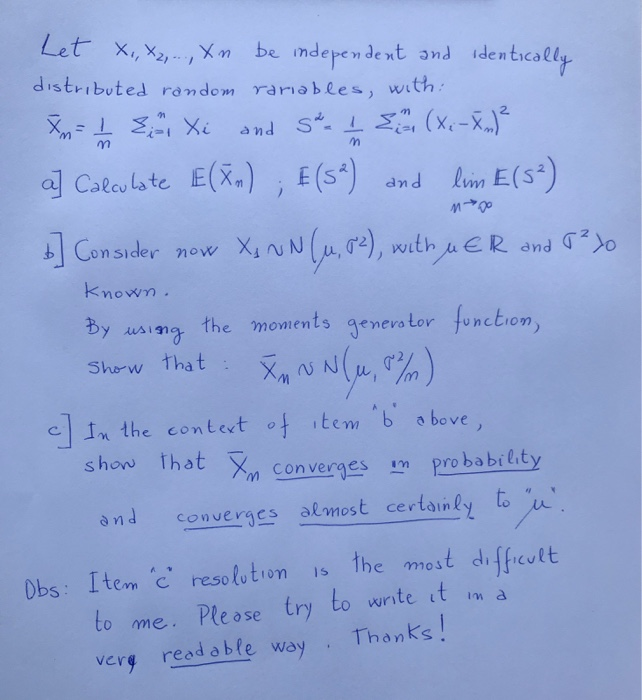 Let X₁, X₂, ..., Xn be independent and identically
distributed random variables, with:
X̄n = 1/n Σⁿᵢ₌₁ Xi and S² = 1/n Σⁿᵢ₌₁ (Xi - X̄n)²
a] Calculate E(X̄n) ; E(S²) and lim n→∞ E(S²)
b] Consider now X₁ ~ N(μ, σ²), with μ ∈ R and σ² > 0
known.
By using the moments generator function,
Show that : X̄n ~ N(μ, σ²/n)
c] In the context of item "b" above,
show that X̄n converges in probability
and converges almost certainly to "μ".
Obs: Item "c" resolution is the most difficult
to me. Please try to write it in a
very readable way. Thanks!